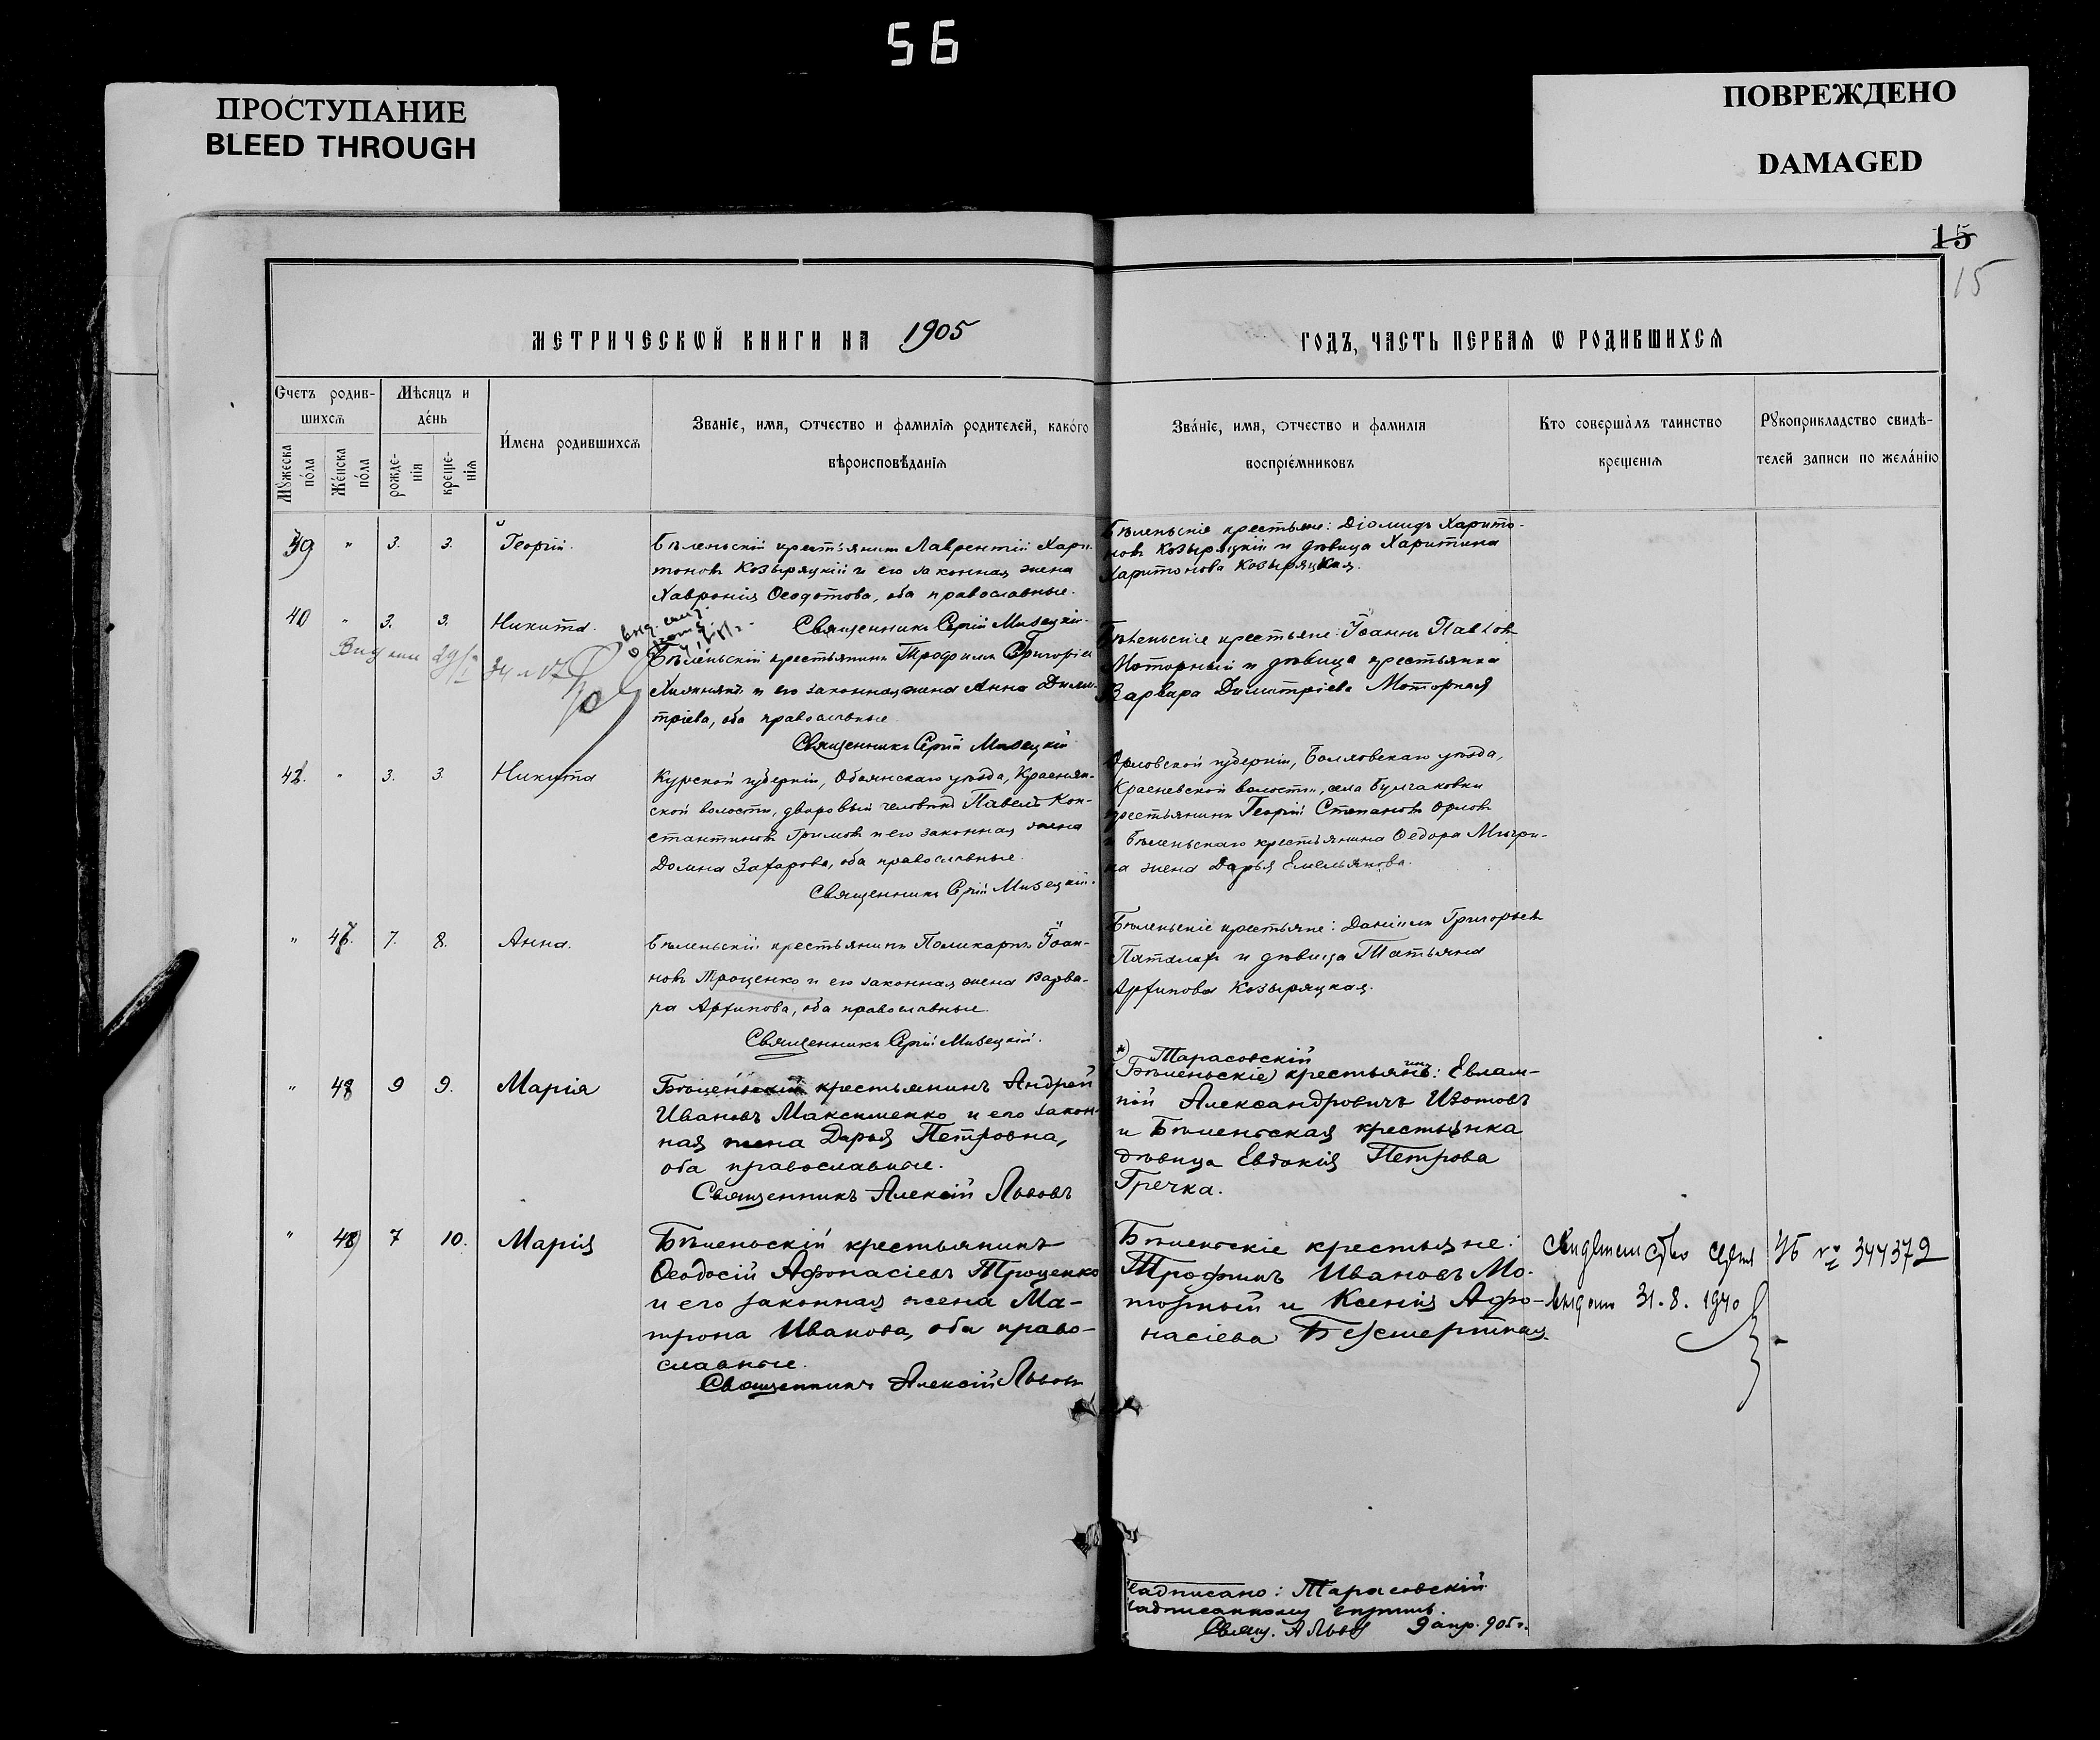 56
ПРОСТУПАНИЕ
BLEED THROUGH
ПОВРЕЖДЕНО
DAMAGED
15
15
МЕТРИЧЕСКѠЙ КНИГИ НА 1905 ГОДЪ, ЧАСТЬ ПЕРВАЯ Ѡ РОДИВШИХСЯ
Счетъ родив-
шихся
Мꙋжеска
пола
Женска
пола
Мѣсяцъ и
день
рожде-
нія
креще-
нія
Имена родившихся
Званіе, имя, отчество и фамилія родителей, какого
вѣроисповѣданія
Званіе, имя, отчество и фамилія
воспріемниковъ
Кто совершалъ таинство
крещенія
Рꙋкоприкладство свидѣ-
телей записи по желанію
39 " 3. 3. Георгій.
Бѣленьскій крестьянинъ Лаврентій Хари-
тоновъ Козыряцкій и его законная жена
Хавронія Ѳеодотова, оба православные.
Священникъ Сергій Мивецкій.
Бѣленьскіе крестьяне: Діомидъ Харито-
новъ Козыряцкій и дѣвица Харитина
Харитонова Козыряцкая.
40 " 3. 3. Никита.
Бѣленьскій крестьянинъ Трофимъ Григорьев
и его законная жена Анна Дими-
тріева, оба православные
Священникъ Сергій Мивецкій
Бѣленьскіе крестьяне: Іоаннъ Павлов
Моторный и дѣвица крестьянка
Варвара Димитріева Моторная
42. " 3. 3. Никита
Курской губерніи, Обоянскаго уѣзда, Краснян-
ской волости, дворовый человѣкъ Павелъ Кон-
стантиновъ Громовъ и его законная жена
Домна Захарова, оба православные.
Священникъ Сергій Мивецкій.
Орловской губерніи, Болховскаго уѣзда,
волости, села Булгаковки
крестьянинъ Георгій Степановъ Орловъ
и Бѣленьскаго крестьянина Ѳедора
жена Дарья Емельянова.
" 7. 8. Анна.
Бѣленьскій крестьянинъ Поликарпъ Іоан-
новъ Троценко и его законная жена Варва-
ра Архипова, оба православные.
Священникъ Сергій Мивецкій.
Бѣленьскіе крестьяне: Даніилъ Григорьев
и дѣвица Татьяна
Архипова Козыряцкая.
" 48 9 9. Марія
Бѣленьскій крестьянинъ Андрей
Ивановъ Максименко и его закон-
ная жена Дарья Петровна,
оба православные.
Священникъ Алексій Львовъ
*) Тарасовскій
(Бѣленьскіе) крестьянинъ: Евлам-
пій Александровичъ Изотовъ
и Бѣленьская крестьянка
дѣвица Евдокія Петрова
Гречка.
" 7 10. Марія
Бѣленьскій крестьянинъ
Ѳеодосій Афонасіевъ Троценко
и его законная жена Ма-
трона Иванова, оба право-
славные.
Священникъ Алексій Львовъ
Бѣленьскіе крестьяне:
Трофимъ Ивановъ Мо-
торный и Ксенія Афо-
насіева Безсмертная.
№ 344372
31.8.1940
Надписано: Тарасовскій
надписанному вѣрить.
Свящ. А Львов 9 апр. 905 г.